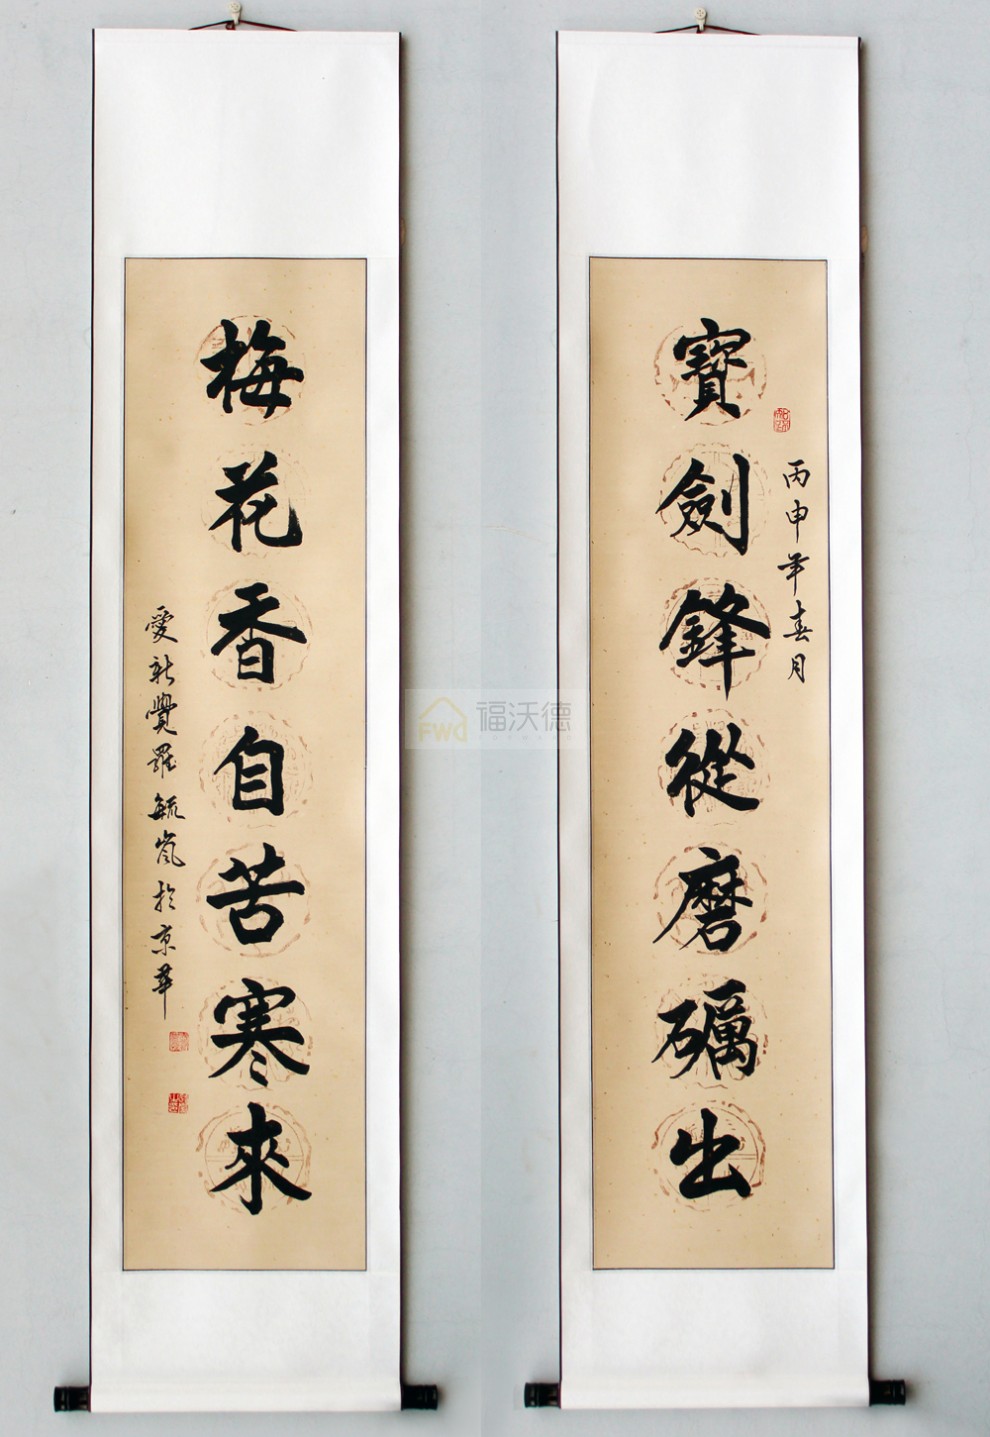 寶劍鋒從磨礪出
丙申年春月
梅花香自苦寒來
愛新覺羅毓嵐於京華
FWD 福沃德